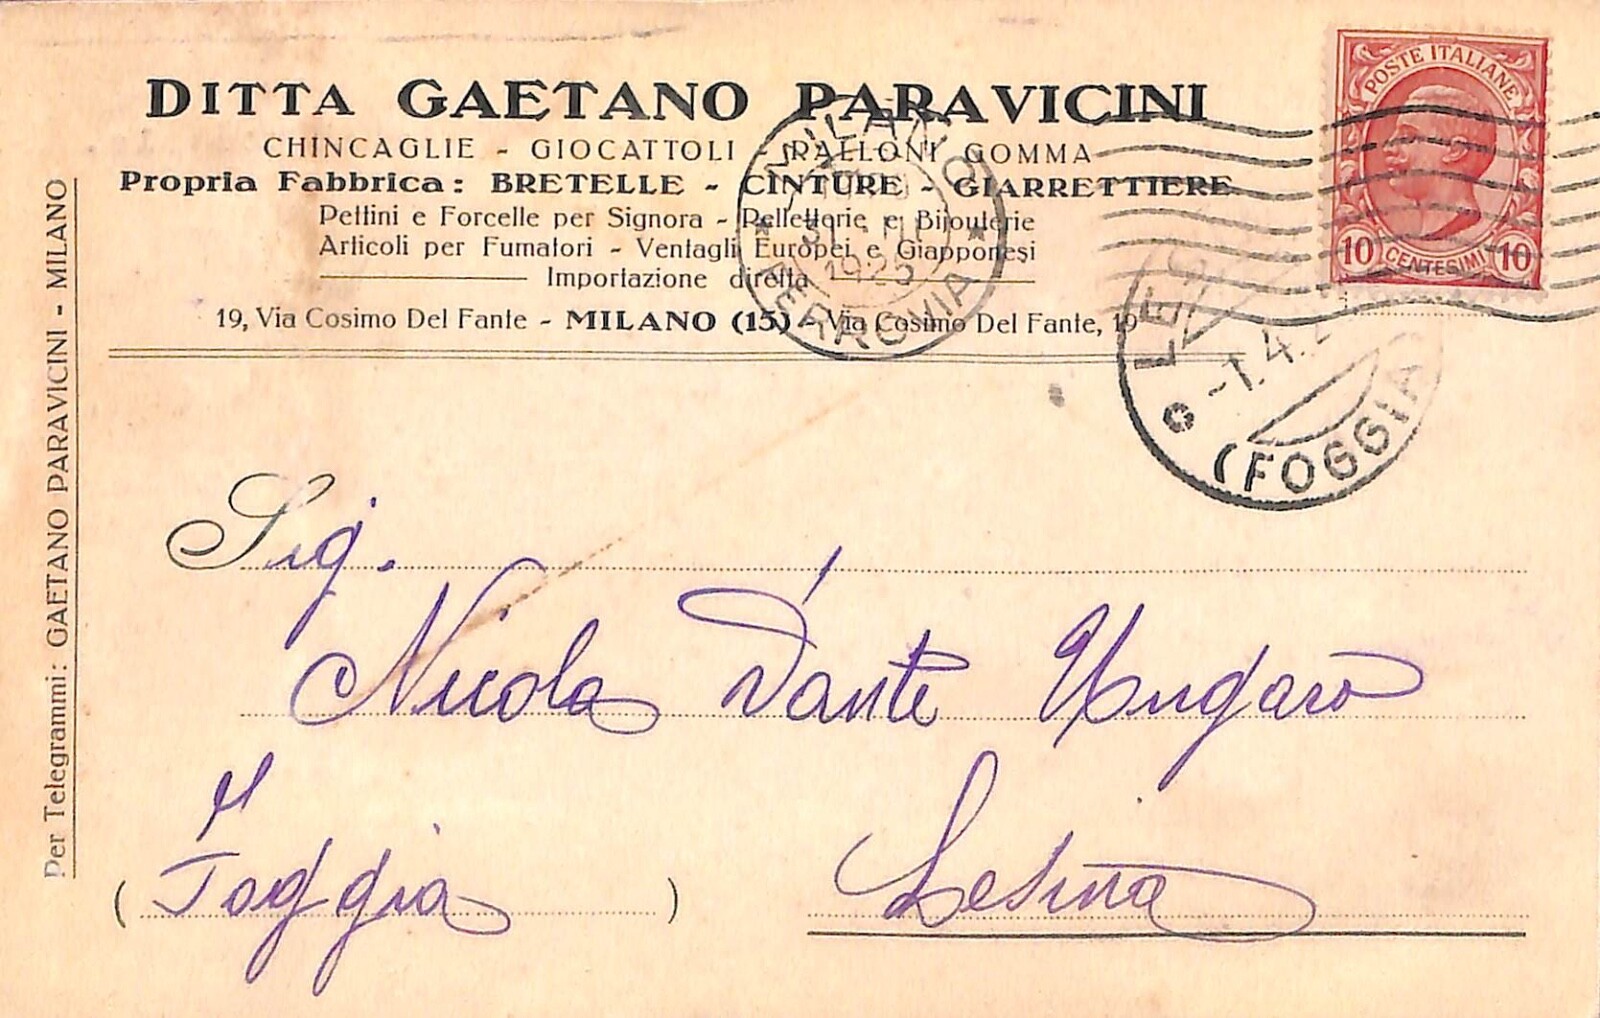 DITTA GAETANO PARAVICINI
CHINCAGLIE - GIOCATTOLI - PALLONI GOMMA
Propria Fabbrica: BRETELLE - CINTURE - GIARRETTIERE
Pettini e Forcelle per Signora - Pelletterie e Bijouterie
Articoli per Fumatori - Ventagli Europei e Giapponesi
Importazione diretta
19, Via Cosimo Del Fante - MILANO (15) - Via Cosimo Del Fante, 19
Per Telegrammi: GAETANO PARAVICINI - MILANO
POSTE ITALIANE
10 CENTESIMI 10
MILANO
1925
FERROVIA
-1.4.2
(FOGGIA
Sig.
Nicola Dante Ungaro
Lesina
(Foggia)